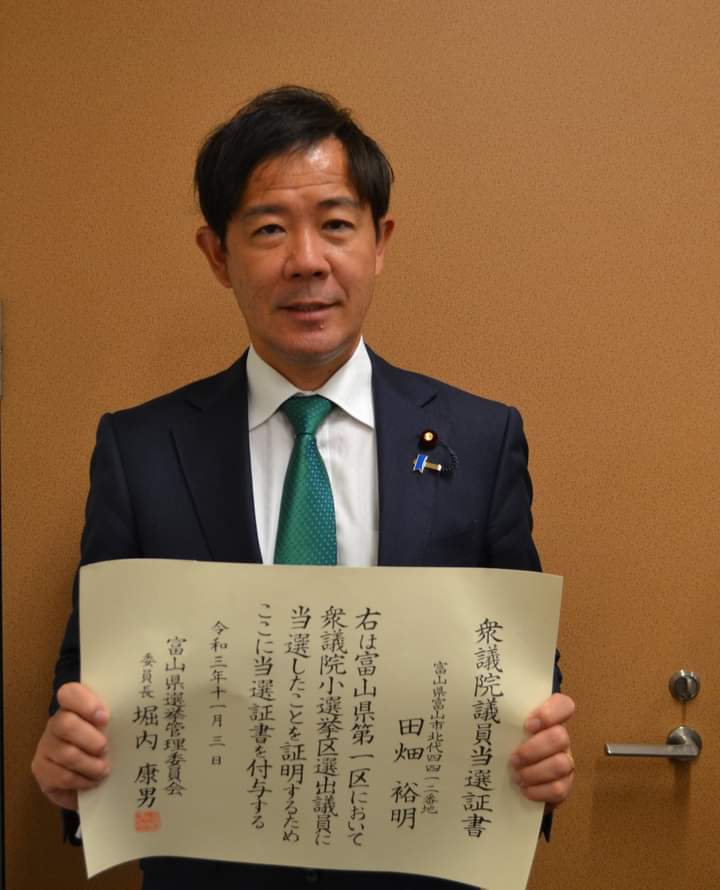 衆議院議員当選証書
富山県富山市北代四四一二番地
田畑 裕明
右は富山県第一区において
衆議院小選挙区選出議員に
当選したことを証明するため
ここに当選証書を付与する
令和三年十一月三日
富山県選挙管理委員会
委員長 堀内 康男